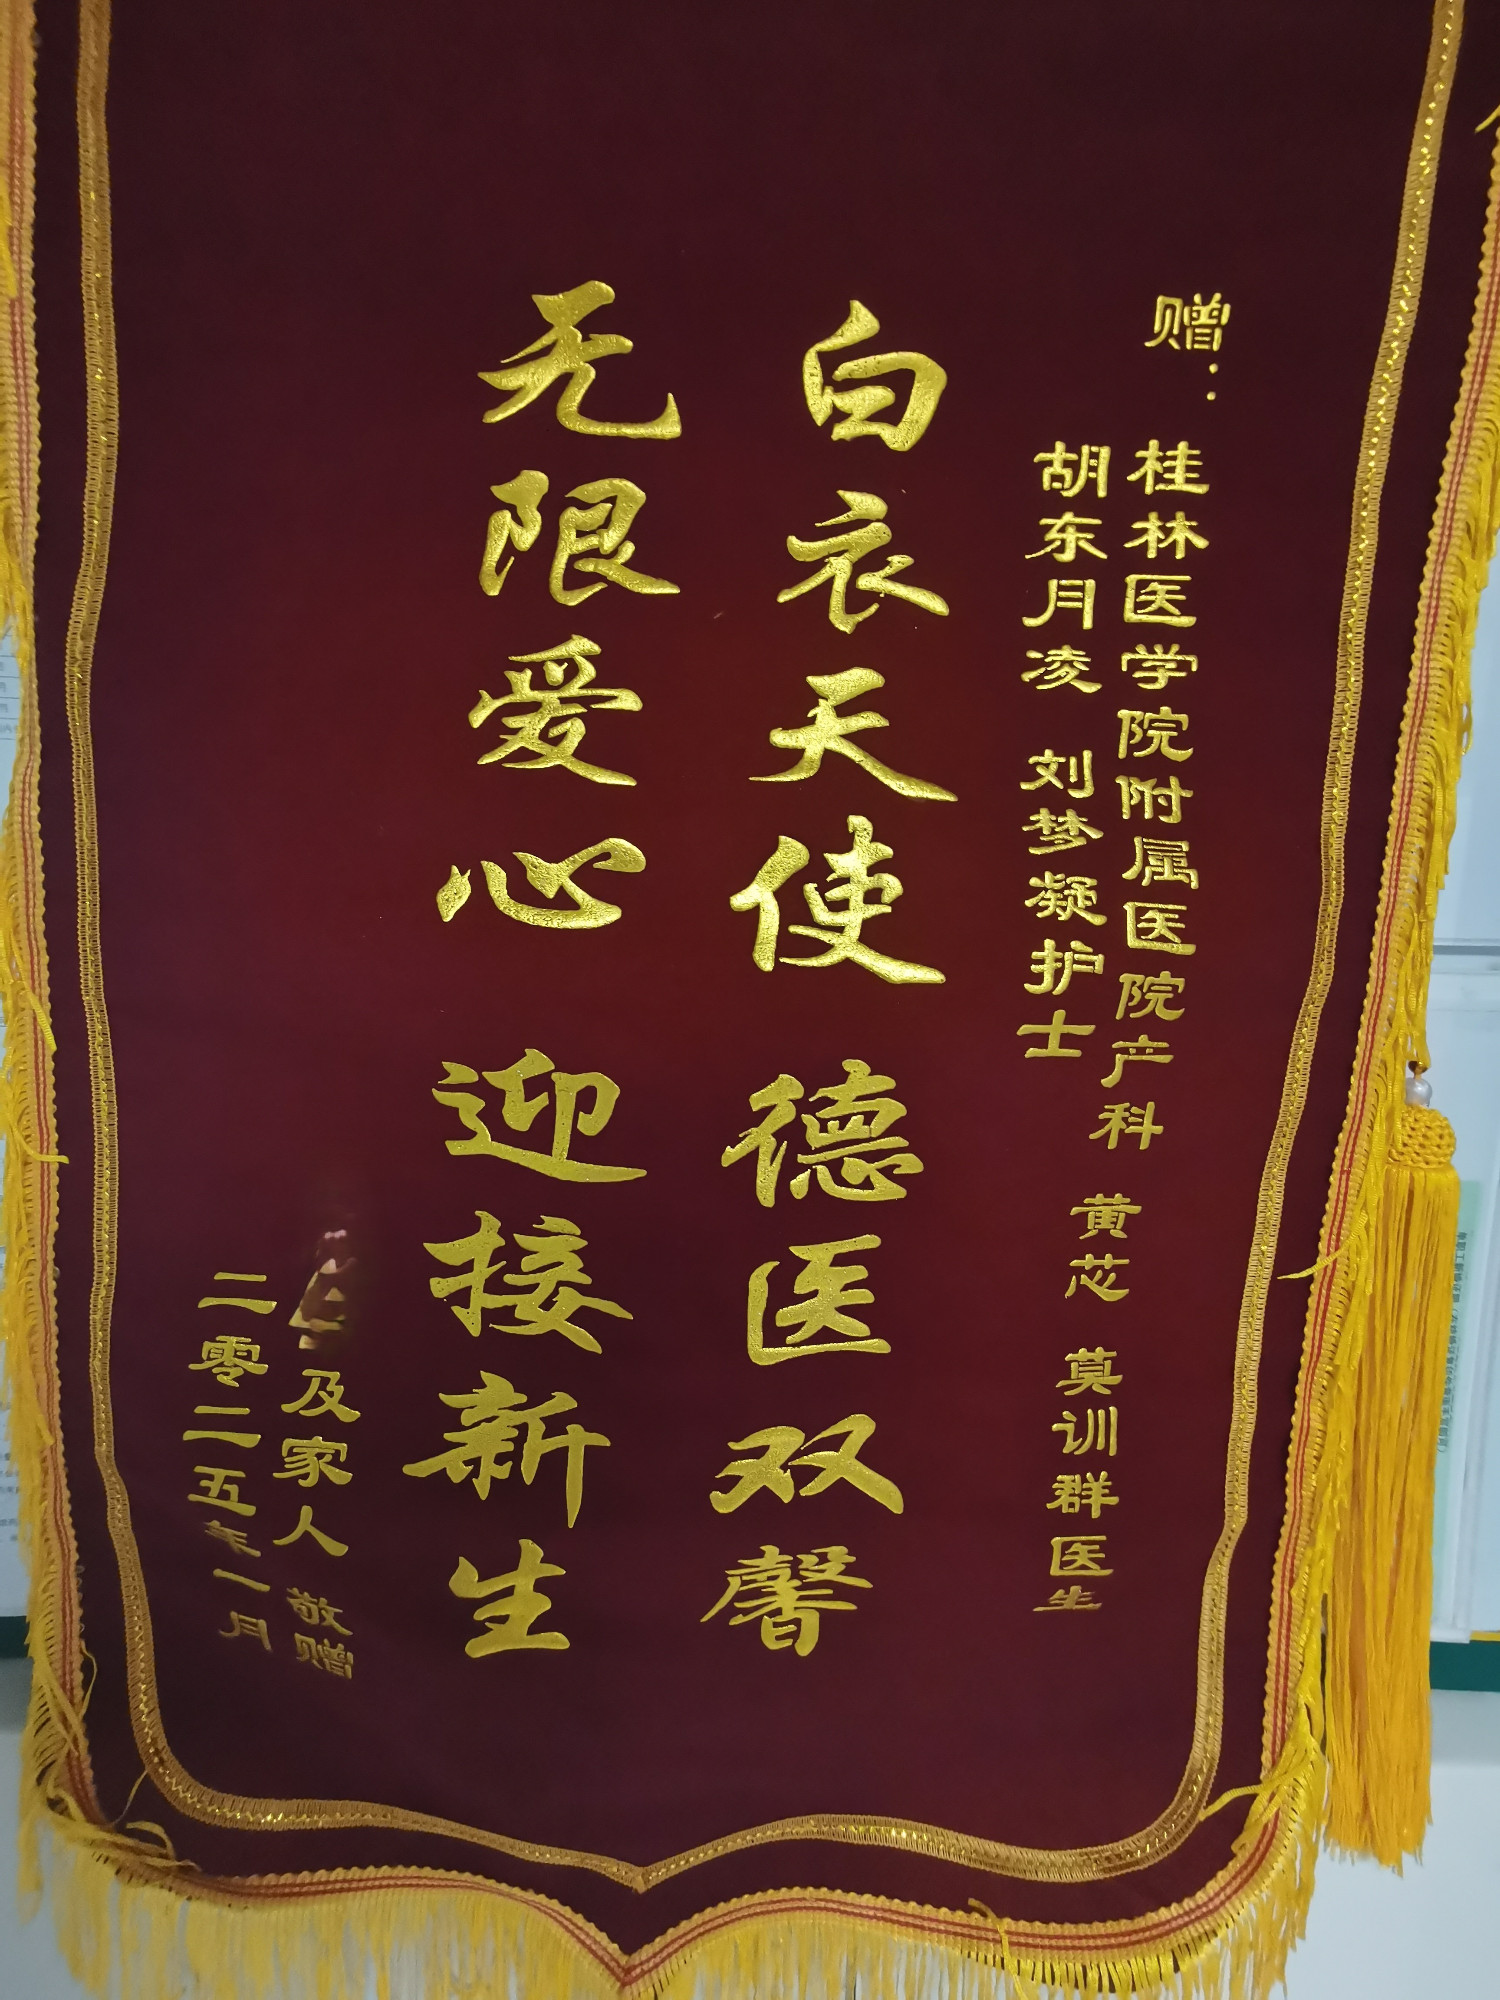 赠：
桂林医学院附属医院产科 黄芯 莫训群医生
胡东月凌 刘梦凝护士
白衣天使 德医双馨
无限爱心 迎接新生
及家人 敬赠
二零二五年一月